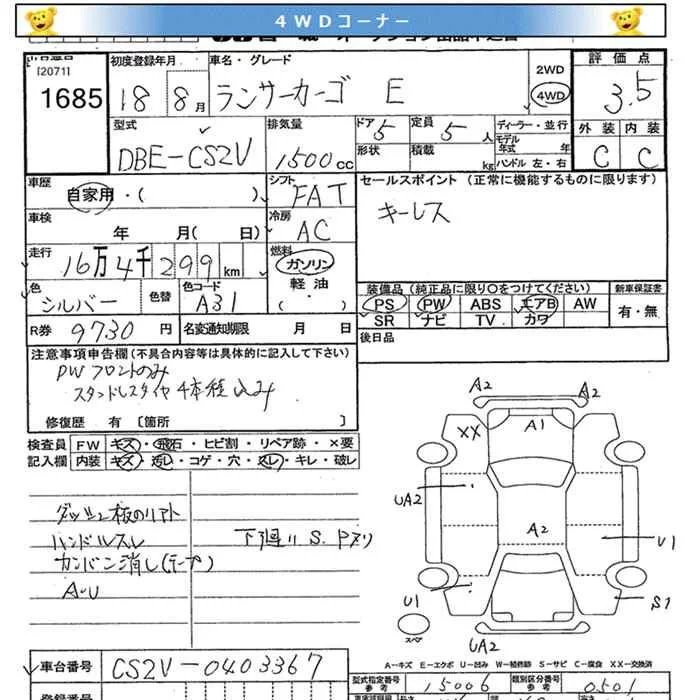 ４ＷＤコーナー
[2071]
1685
初度登録年月
18 8月
車名・グレード
ランサーカーゴ E
2WD
4WD
評価点
3.5
外装 内装
C C
型式
DBE-CS2V
排気量
1500cc
ドア 5
形状
定員 5人
積載 kg
ディーラー・並行
モデル年式 年
ハンドル 左・右
車歴
自家用・( )
シフト
FAT
セールスポイント（正常に機能するものに限ります）
キーレス
車検
年 月( 日)
冷房
AC
走行
16万4千299km
燃料
ガソリン
軽油
( ・ )
色
シルバー
色替
色コード
A31
装備品（純正品に限り○をつけてください）
新車保証書
PS PW ABS エアB AW
SR ナビ TV カワ
有・無
R券 9730円
名変通知期限 月 日
後日品
注意事項申告欄(不具合内容等は具体的に記入して下さい)
PW フロントのみ
スタッドレスタイヤ 4本積込み
修復歴 有〔箇所 〕
検査員記入欄
FW キズ・飛石・ヒビ割・リペア跡・×要
内装 キズ・汚レ・コゲ・穴・スレ・キレ・破レ
ハンドルスレ
カンバン消し(テープ)
A・U
下廻り S.
A2 A2
XX A1
UA2
A2
U1
U1
S1
スペア
UA2
A-キズ E-エクボ U-凹み W-補修跡 S-サビ C-腐食 XX-交換済
車台番号
CS2V-0403367
型式指定番号
参考
15006
類別区分番号
参考
0501